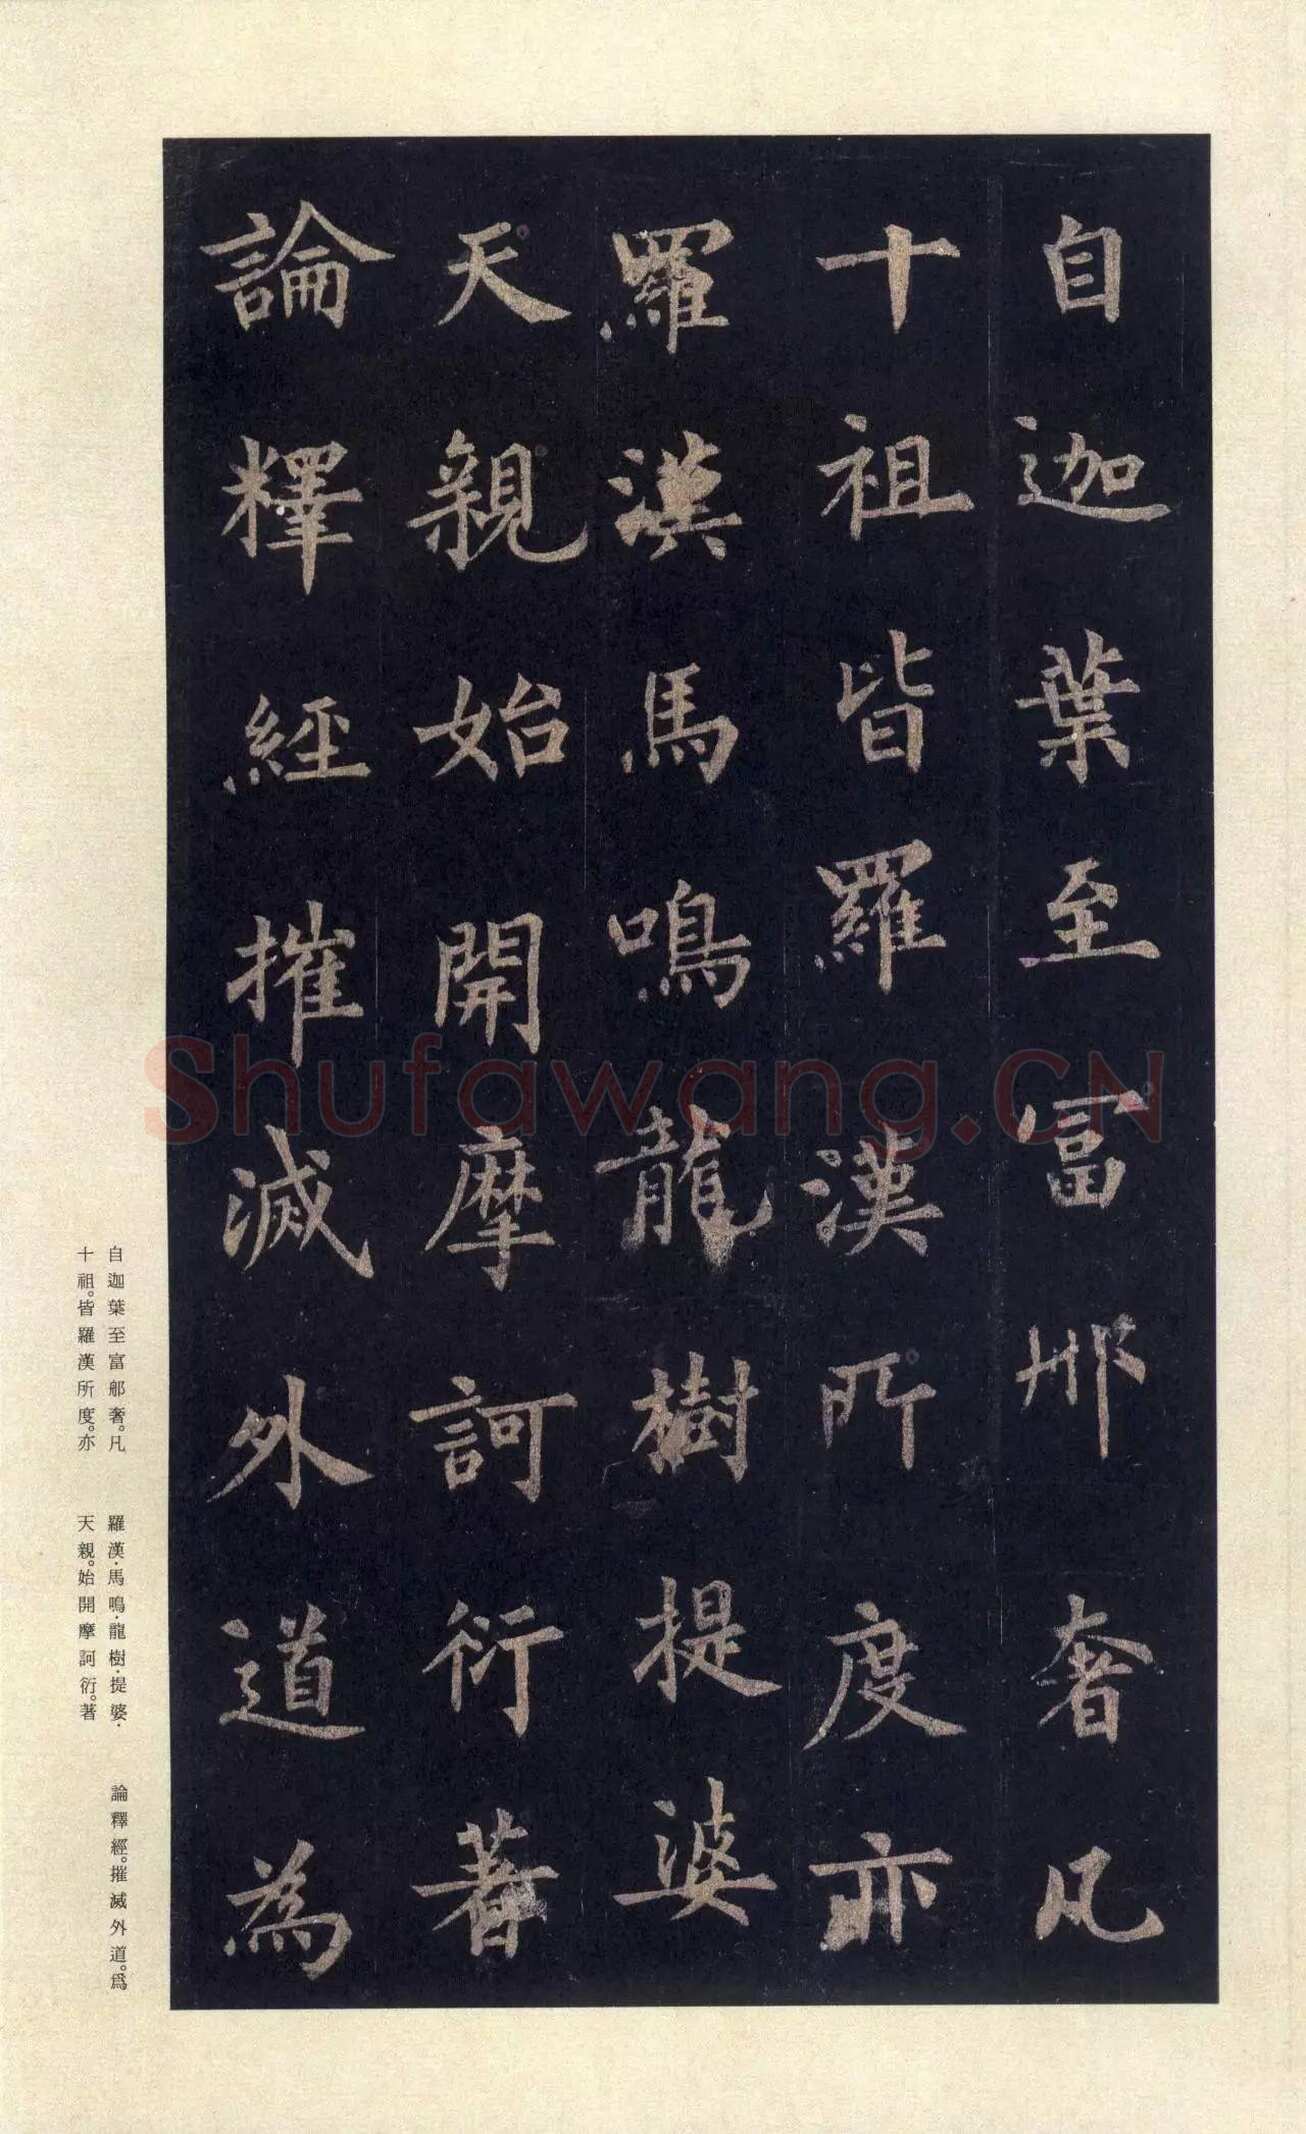 自迦葉至富郍奢凡
十祖皆羅漢所度亦
羅漢馬鳴龍樹提婆
天親始開摩訶衍著
論釋經摧滅外道為
自迦葉至富郍奢。凡
十祖。皆羅漢所度。亦
羅漢·馬鳴·龍樹·提婆·
天親。始開摩訶衍。著
論釋經。摧滅外道。爲
Shufawang.CN